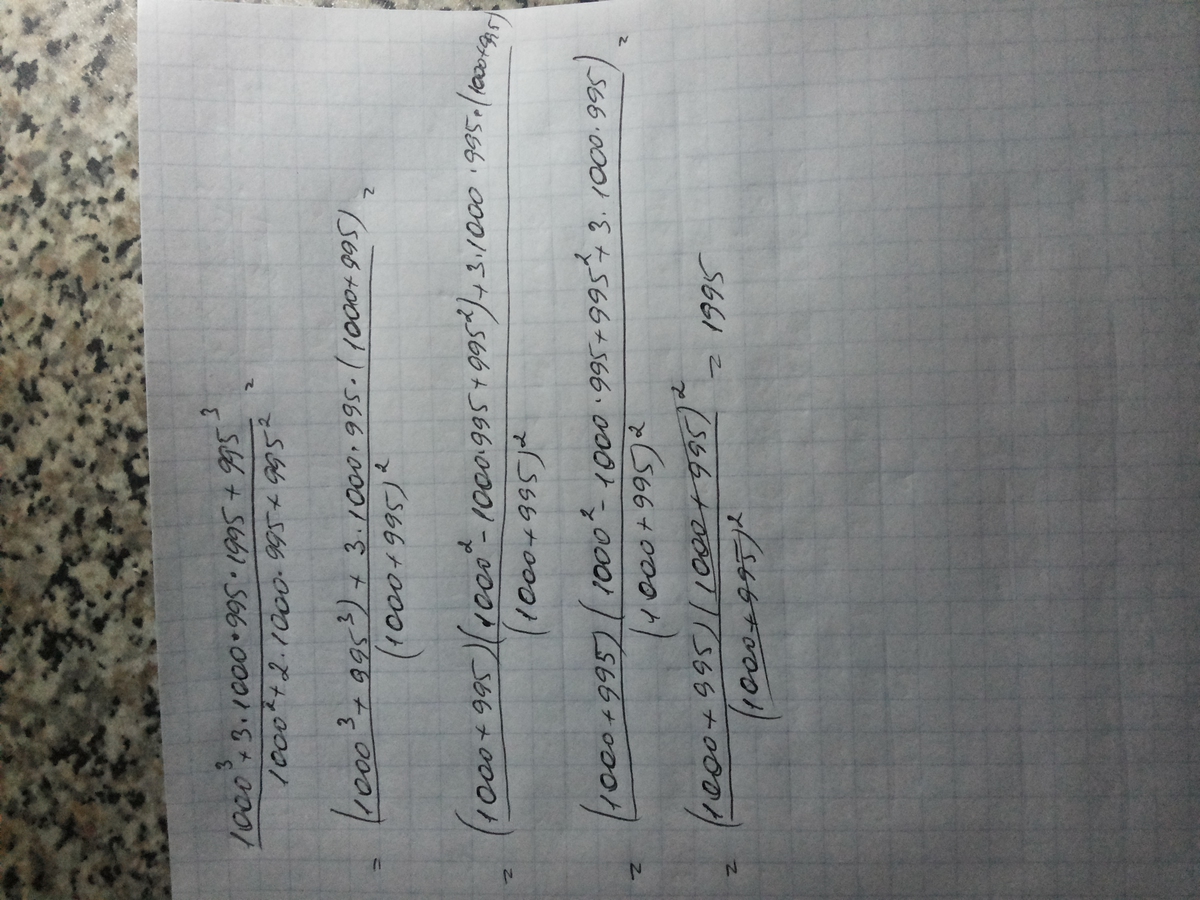 1000³ + 3·1000·995·1995 + 995³ =
1000² + 2·1000·995 + 995²
= (1000³ + 995³) + 3·1000·995·(1000+995) =
(1000+995)²
= (1000+995)(1000² - 1000·995 + 995²) + 3·1000·995·(1000+995)
(1000+995)²
= (1000+995)(1000² - 1000·995 + 995² + 3·1000·995) =
(1000+995)²
= (1000+995)(1000+995)² = 1995
(1000+995)²